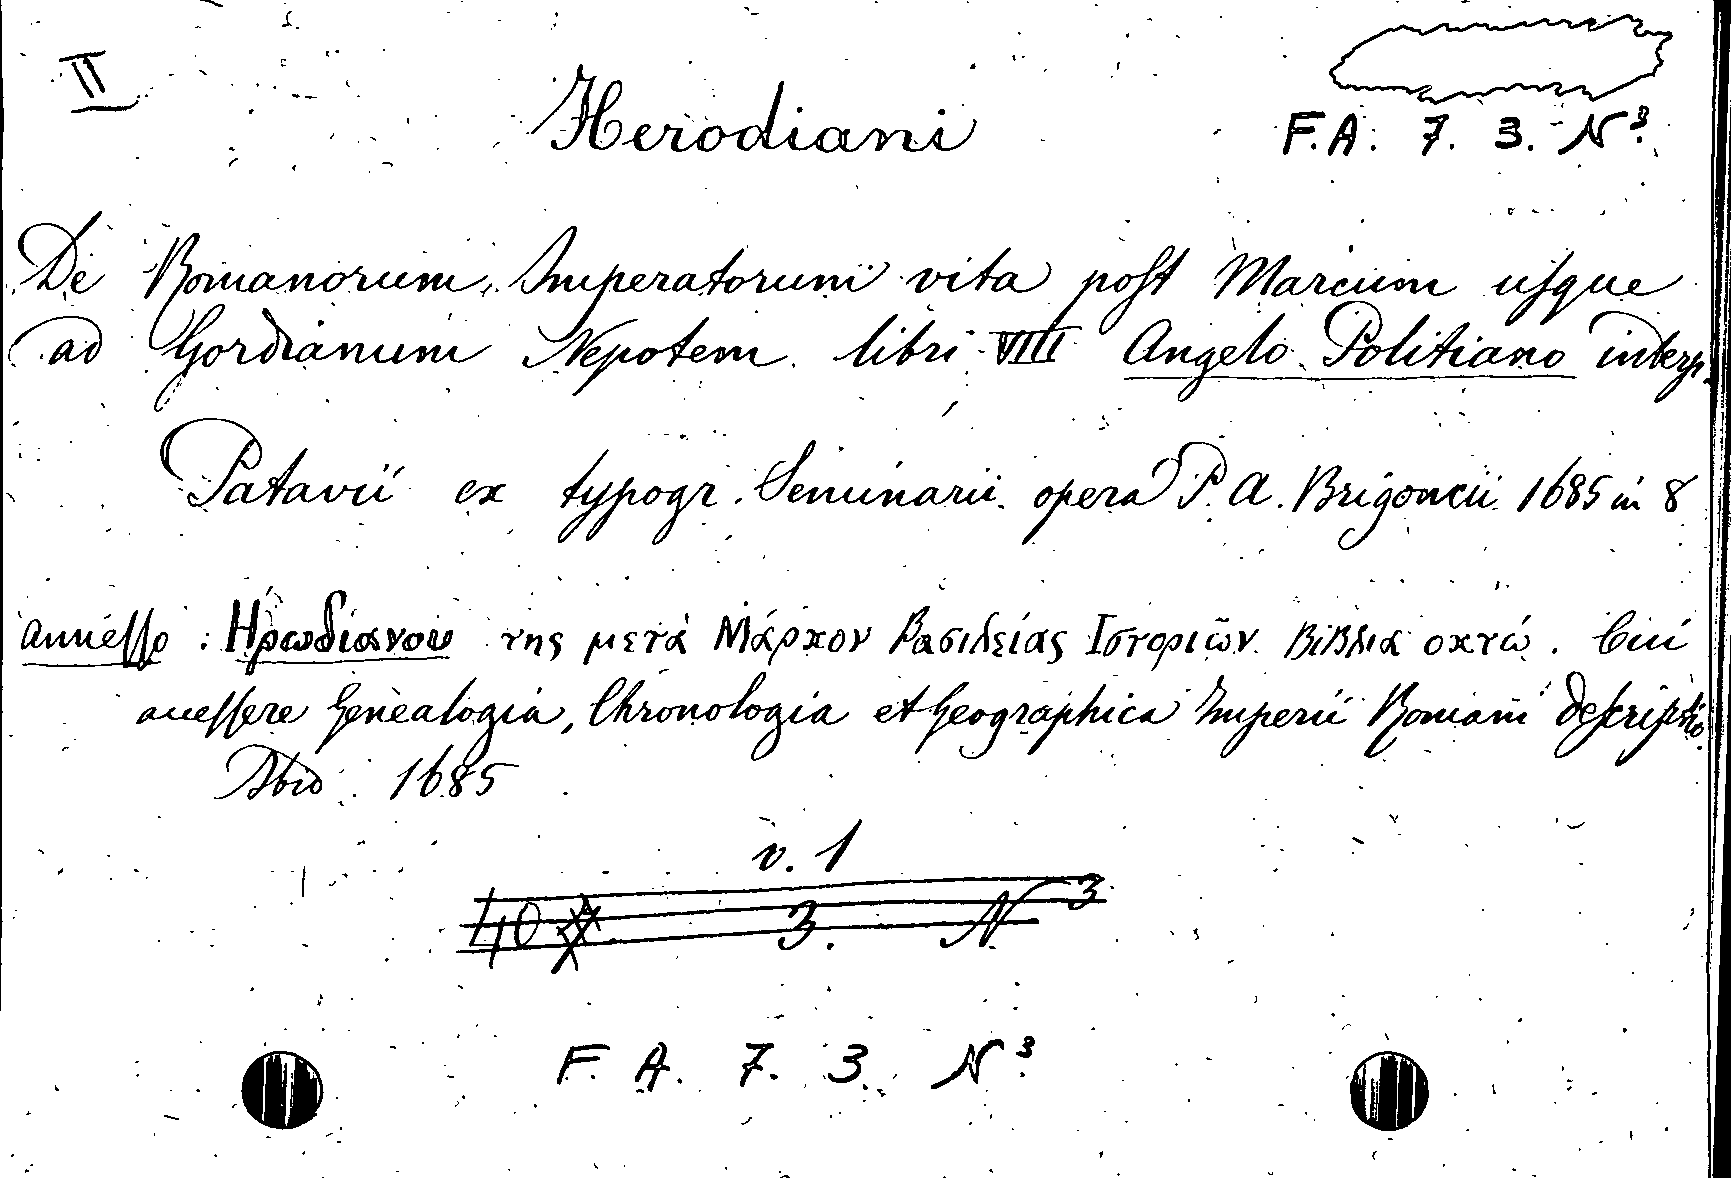 II
Herodiani
F. A. 7. 3. N³.
De Romanorum Imperatorum vita post Marcum usque
ad Gordianum Nepotem libri VIII Angelo Politiano interp.
Patavii ex typogr. Seminarii opera P. A. Brigoncii 1685 in 8
annesso : Ηρωδιανου της μετά Μάρκον Βασιλείας Ιστοριῶν Βιβλια οκτώ. Cui
accessere Genealogia, Chronologia et Geographica Imperii Romani descriptio.
Ibid. 1685
v. 1
40 3. N 3
F. A. 7. 3. N³